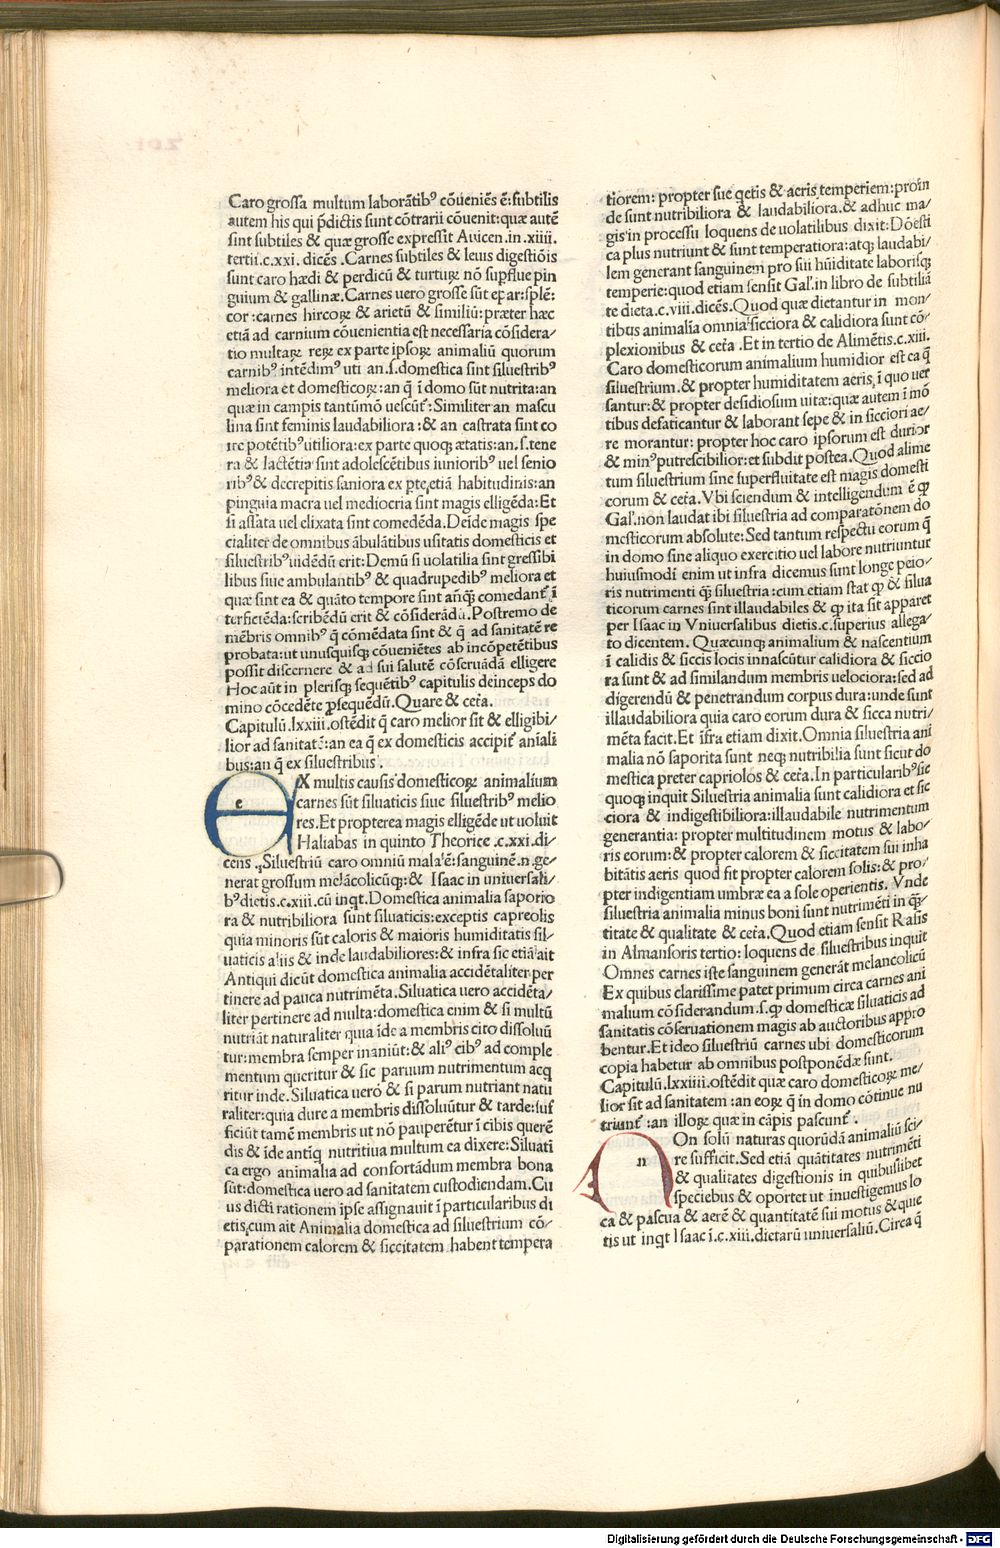 Caro grossa multum laborātibꝰ cōueniēs ē: subtilis
autem his qui p̄dictis sunt cōtrarii cōuenit: quæ autē
sint subtiles & quæ grosse expressit Auicen. in .xiiii.
tertii.c.xxi. dicēs .Carnes subtiles & leuis digestiōis
sunt caro hædi & perdicū & turturꝝ nō supflue pin
guium & gallinæ. Carnes uero grosse sūt epar: splē:
cor: carnes hircoꝝ & arietū & similiū: præter hæc
etiā ad carnium cōuenientia est necessaria cōsidera/
tio multaꝝ reꝝ ex parte ipsoꝝ animaliū quorum
carnibꝰ intēdimꝰ uti an.s. domestica sint siluestribꝰ
meliora et domesticoꝝ: an q̄ ī domo sūt nutrita: an
quæ in campis tantūmō uescūt᷑: Similiter an mascu
lina sint feminis laudabiliora: & an castrata sint co
ire potētibꝰ utiliora: ex parte quoqꝫ ætatis: an.s. tene
ra & lactētia sint adolescētibus iunioribꝰ uel senio
ribꝰ & decrepitis saniora ex pte, etiā habitudinis: an
pinguia macra uel mediocria sint magis elligēda: Et
si assata uel elixata sint comedēda. Deīde magis spe
cialiter de omnibus ābulātibus usitatis domesticis et
siluestribꝰ uidēdū erit: Demū si uolatilia sint gressibi
libus siue ambulantibꝰ & quadrupedibꝰ meliora et
quæ sint ea & quāto tempore sint anq̄ꝫ comedant᷑ ī
terficiēda: scribēdū erit & cōsiderādū. Postremo de
mēbris omnibꝰ q̄ cōmēdata sint & q̄ ad sanitatē re
probata: ut unusquisqꝫ cōueniētes ab incōpetētibus
possit discernere & ad sui salutē cōseruādā elligere
Hoc aūt in plerisqꝫ sequētibꝰ capitulis deinceps do
mino cōcedēte ꝓsequēdū. Quare & cet᷑a.
Capitulū.lxxiii. ostēdit q̄ caro melior sit & elligibi/
lior ad sanitatē: an ea q̄ ex domesticis accipit᷑ anīali
bus: an q̄ ex siluestribus.
e
EX multis causis domesticoꝝ animalium
carnes sūt siluaticis siue siluestribꝰ melio
res. Et propterea magis elligēde ut uoluit
Haliabas in quinto Theorice .c.xxi. di/
cens ,Siluestriū caro omniū mala ē: sanguinē .n. ge/
nerat grossum melācolicūqꝫ: & Isaac in uniuersali/
bꝰ dietis.c.xiii. cū inqt. Domestica animalia saporio
ra & nutribiliora sunt siluaticis: exceptis capreolis
quia minoris sūt caloris & maioris humiditatis sil/
uaticis aliis & inde laudabiliores: & infra sic etiā ait
Antiqui dicūt domestica animalia accidētaliter per
tinere ad pauca nutrimēta. Siluatica uero accidēta/
liter pertinere ad multa: domestica enim & si multū
nutriāt naturaliter quia īde a membris cito dissoluū
tur: membra semper inaniūt: & aliꝰ cibꝰ ad comple
mentum queritur & sic paruum nutrimentum acq
ritur inde. Siluatica uero & si parum nutriant natu
raliter: quia dure a membris dissoluūtur & tarde: suf
ficiūt tamē membris ut nō pauperēt᷑ur ī cibis querē
dis & īde antiq̄ nutritiua multum ea dixere: Siluati
ca ergo animalia ad confortādum membra bona
sūt: domestica uero ad sanitatem custodiendam. Cu
ius dicti rationem ipse assignauit ī particularibus di
etis, cum ait Animalia domestica ad siluestrium cō/
parationem calorem & siccitatem habent tempera
tiorem: propter sue qetis & aeris temperiem: proin
de sunt nutribiliora & laudabiliora. & adhuc ma/
gis in processu loquens de uolatilibus dixit: Dōesti
ca plus nutriunt & sunt temperatiora: atqꝫ laudabi/
lem generant sanguinem pro sui hūiditate laborisqꝫ
temperie: quod etiam sensit Gal᷑. in libro de subtiliā
te dieta.c.viii. dicēs. Quod quæ dietantur in mon/
tibus animalia omnia sicciora & calidiora sunt cō/
plexionibus & cet᷑a .Et in tertio de Alimētis.c.xiii.
Caro domesticorum animalium humidior est ea q̄
siluestrium. & propter humiditatem aeris, ī quo uer
santur: & propter desidiosum uitæ: quæ autem ī mō
tibus defaticantur & laborant sepe & in sicciori ae/
re morantur: propter hoc caro ipsorum est durior
& minꝰ putrescibilior: et subdit postea. Quod alime
tum siluestrium sine superfluitate est magis domesti
corum & cet᷑a. Vbi sciendum & intelligendum ē ꝙ
Gal᷑. non laudat ibi siluestria ad comparatōnem do
mesticorum absolute: Sed tantum respectu eorum q̄
in domo sine aliquo exercitio uel labore nutriuntur
huiusmodi enim ut infra dicemus sunt longe peio/
ris nutrimenti qꝫ siluestria: cum etiam stat ꝙ & silua
ticorum carnes sint illaudabiles & ꝙ ita sit apparet
per Isaac in Vniuersalibus dietis.c. superius allega/
to dicentem. Quæcunqꝫ animalium & nascentium
ī calidis & siccis locis innascūtur calidiora & siccio
ra sunt & ad similandum membris uelociora: sed ad
digerendū & penetrandum corpus dura: unde sunt
illaudabiliora quia caro eorum dura & sicca nutri/
mēta facit. Et īfra etiam dixit. Omnia siluestria ani
malia nō saporita sunt neqꝫ nutribilia sunt sicut do
mestica preter capriolos & cet᷑a. In particularibꝰ sic
quoqꝫ inquit Siluestria animalia sunt calidiora et sic
ciora & indigestibiliora: illaudabile nutrimentum
generantia: propter multitudinem motus & labo/
ris eorum: & propter calorem & siccitatem sui inha
bitātis aeris quod fit propter calorem solis: & pro/
pter indigentiam umbræ ea a sole operientis. Vnde
siluestria animalia minus boni sunt nutrimēti in qꝫ/
titate & qualitate & cet᷑a. Quod etiam sensit Rasis
in Almansoris tertio: loquens de siluestribus inquit
Omnes carnes iste sanguinem generāt melancolicū
Ex quibus clarissime patet primum circa carnes ani
malium cōsiderandum .s. ꝙ domesticæ siluaticis ad
sanitatis cōseruationem magis ab auctoribus appro
bentur. Et ideo siluestriū carnes ubi domesticorum
copia habetur ab omnibus postponēdæ sunt.
Capitulū.lxxiiii. ostēdit quæ caro domesticoꝝ me/
lior sit ad sanitatem: an eoꝝ q̄ in domo cōtinue nu
triunt᷑: an illoꝝ quæ in cāpis pascunt᷑.
n
NOn solū naturas quorūdā animaliū sci/
re sufficit. Sed etiā quātitates nutrimēti
& qualitates digestionis in quibuslibet
speciebus & oportet ut inuestigemus lo
ca & pascua & aerē & quantitatē sui motus & que
tis ut inqt Isaac ī.c.xiii. dietarū uniuersaliū. Circa q̄
Digitalisierung gefördert durch die Deutsche Forschungsgemeinschaft - DFG